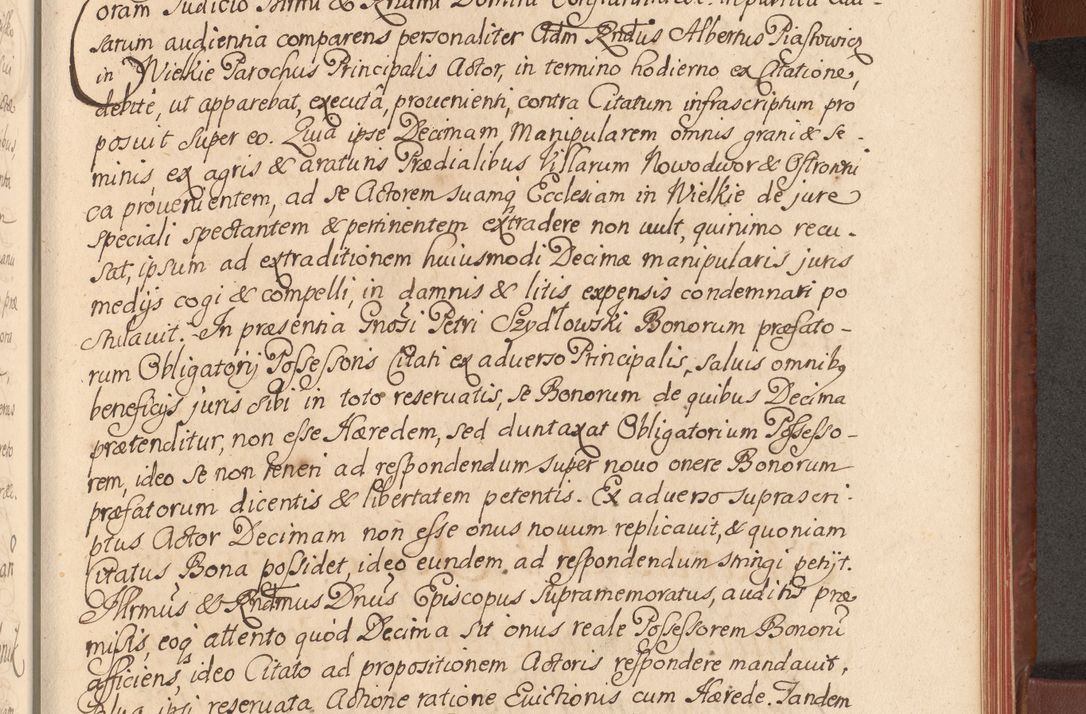 oram Judicio Illmi & Rndmi Domini
sarum audientia comparens personaliter Adm Rndus Albertus Piastowicz
in Wielkie Parochus Principalis Actor, in termino hodierno ex Citatione,
debite, ut apparebat, executa, prouenienti, contra Citatum infrascriptum pro
posuit super eo. Quia ipse Decimam Manipularem omnis grani & se-
minis, ex agris & araturis Prædialibus Villarum Nowodwor & Ostronni
ca prouenientem, ad se Actorem suamq Ecclesiam in Wielkie de jure
speciali spectantem & pertinentem extradere non uult, quinimo recu-
sat, ipsum ad extraditionem huiusmodi Decimæ manipularis juris
medijs cogi & compelli, in damnis & litis expensis condemnari po
stulauit. In præsentia Gnosi Petri Szydlowski Bonorum præfato-
rum Obligatorij Possessoris Citati ex aduerso Principalis, saluis omnibq
beneficijs juris sibi in toto reseruatis, se Bonorum de quibus Decima
prætenditur, non esse Hæredem, sed duntaxat Obligatorium Possesso-
rem, ideo se non teneri ad respondendum super nouo onere Bonorum
præfatorum dicentis & libertatem petentis. Ex aduerso suprascri-
ptus Actor Decimam non esse onus nouum replicauit, & quoniam
Citatus Bona possidet, ideo eundem ad respondendum stringi petijt.
Illrmus & Rndmus Dnus Episcopus supramemoratus, auditis præ
missis, eoq attento quod Decima sit onus reale Possessorem Bonorū
afficiens, ideo Citato ad propositionem Actoris respondere mandauit,
salua ipsi reseruata Actione ratione Euictionis cum Hærede. Tandem